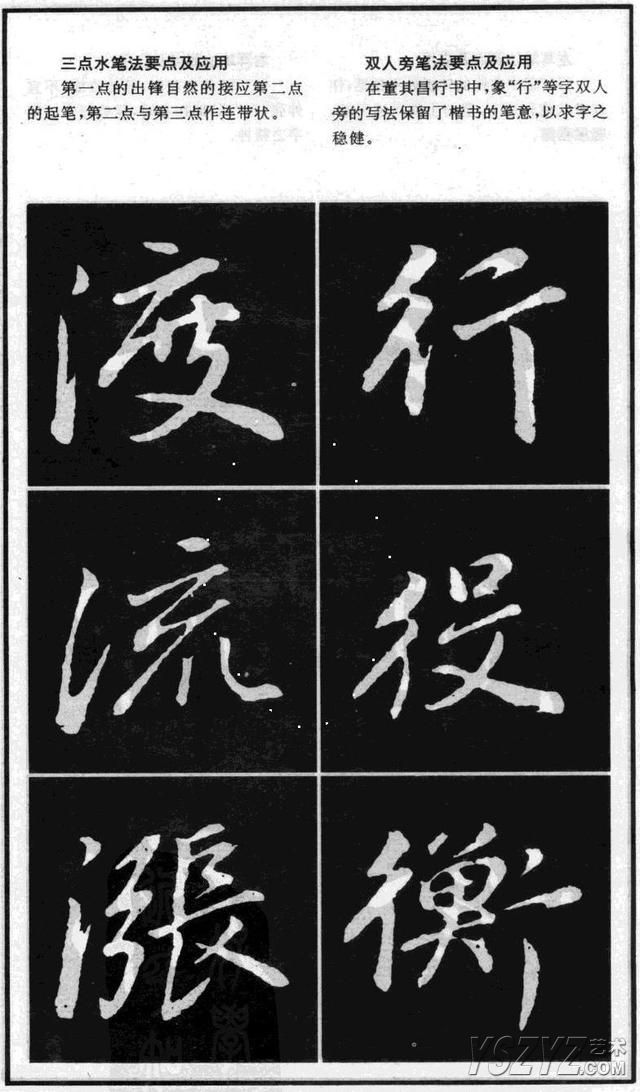 三点水笔法要点及应用
第一点的出锋自然的接应第二点
的起笔,第二点与第三点作连带状。
双人旁笔法要点及应用
在董其昌行书中,象“行”等字双人
旁的写法保留了楷书的笔意,以求字之
稳健。
渡 行
流 役
漲 衡
YSZYZ艺术
.COM